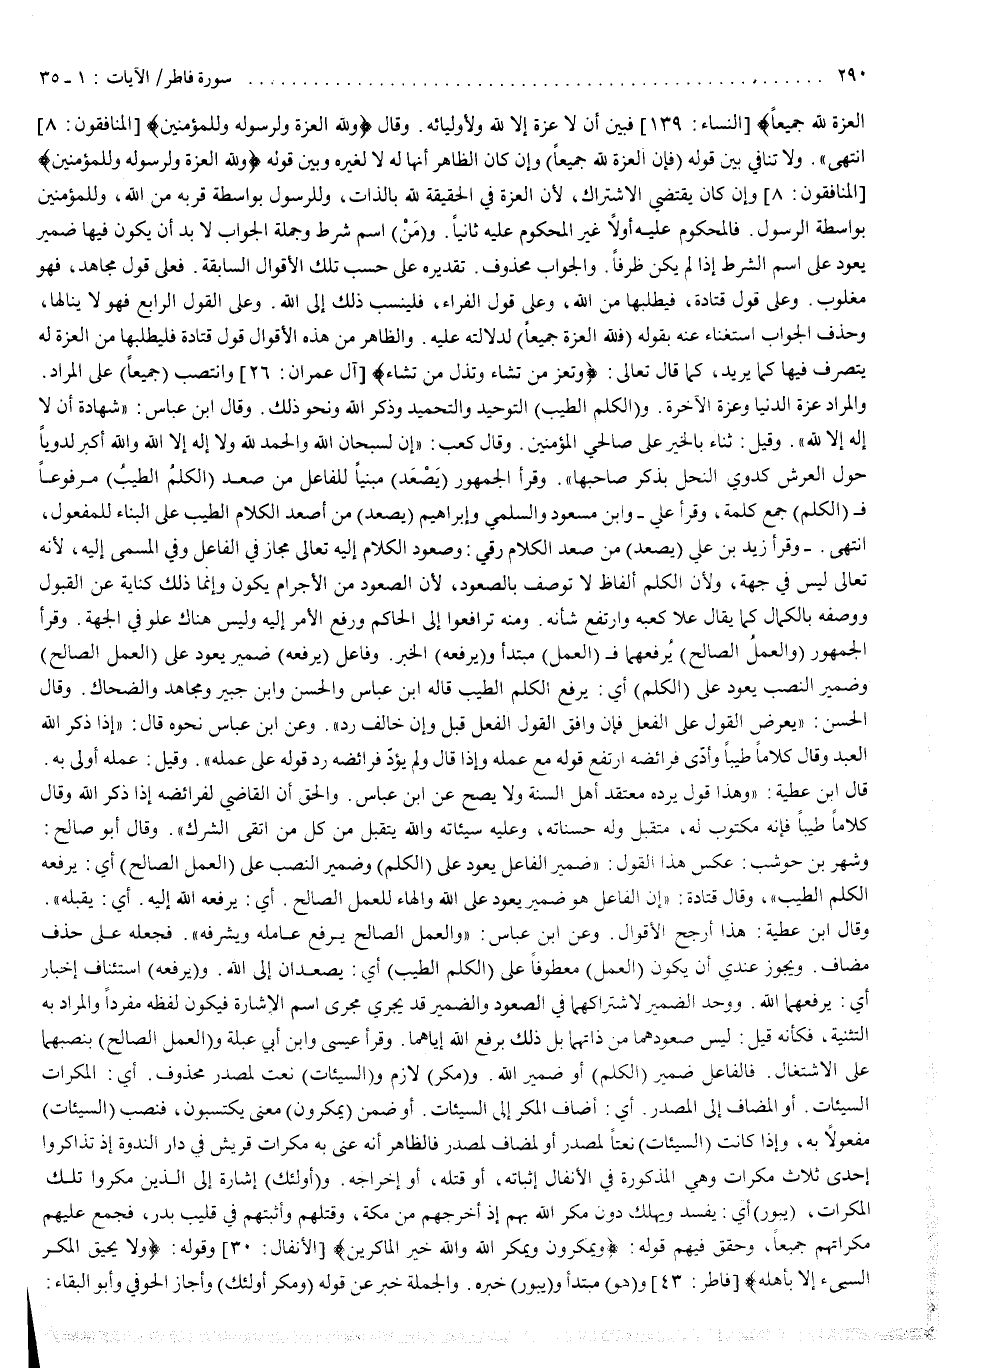 ٢٩٠ ..................................................... سورة فاطر/ الآيات: ١ - ٣٥
العزة لله جميعاً﴾ [النساء: ١٣٩] فبين أن لا عزة إلا لله ولأوليائه. وقال ﴿ولله العزة ولرسوله وللمؤمنين﴾ [المنافقون: ٨]
انتهى». ولا تنافي بين قوله (فإن العزة لله جميعاً) وإن كان الظاهر أنها له لا لغيره وبين قوله ﴿ولله العزة ولرسوله وللمؤمنين﴾
[المنافقون: ٨] وإن كان يقتضي الاشتراك، لأن العزة في الحقيقة لله بالذات، وللرسول بواسطة قربه من الله، وللمؤمنين
بواسطة الرسول. فالمحكوم عليه أولاً غير المحكوم عليه ثانياً. و(مَنْ) اسم شرط وجملة الجواب لا بد أن يكون فيها ضمير
يعود على اسم الشرط إذا لم يكن ظرفاً. والجواب محذوف. تقديره على حسب تلك الأقوال السابقة. فعلى قول مجاهد، فهو
مغلوب. وعلى قول قتادة، فيطلبها من الله، وعلى قول الفراء، فلينسب ذلك إلى الله. وعلى القول الرابع فهو لا ينالها،
وحذف الجواب استغناء عنه بقوله (فلله العزة جميعاً) لدلالته عليه. والظاهر من هذه الأقوال قول قتادة فليطلبها من العزة له
يتصرف فيها كما يريد، كما قال تعالى: ﴿وتعز من تشاء وتذل من تشاء﴾ [آل عمران: ٢٦] وانتصب (جميعاً) على المراد.
والمراد عزة الدنيا وعزة الآخرة. و(الكلم الطيب) التوحيد والتحميد وذكر الله ونحو ذلك. وقال ابن عباس: «شهادة أن لا
إله إلا لله». وقيل: ثناء بالخير على صالحي المؤمنين. وقال كعب: «إن لسبحان الله والحمد لله ولا إله إلا الله والله أكبر لدوياً
حول العرش كدوي النحل بذكر صاحبها». وقرأ الجمهور (يَصْعَد) مبنياً للفاعل من صعد (الكلمُ الطيبُ) مرفوعاً
فـ (الكلم) جمع كلمة، وقرأ علي ـ وابن مسعود والسلمي وإبراهيم (يصعد) من أصعد الكلام الطيب على البناء للمفعول،
انتهى. ـ وقرأ زيد بن علي (يصعد) من صعد الكلام رقي: وصعود الكلام إليه تعالى مجاز في الفاعل وفي المسمى إليه، لأنه
تعالى ليس في جهة، ولأن الكلم ألفاظ لا توصف بالصعود، لأن الصعود من الأجرام يكون وإنما ذلك كناية عن القبول
ووصفه بالكمال كما يقال علا كعبه وارتفع شأنه. ومنه ترافعوا إلى الحاكم ورفع الأمر إليه وليس هناك علو في الجهة. وقرأ
الجمهور (والعملُ الصالح) يُرفعهما فـ (العمل) مبتدأ و(يرفعه) الخبر. وفاعل (يرفعه) ضمير يعود على (العمل الصالح)
وضمير النصب يعود على (الكلم) أي: يرفع الكلم الطيب قاله ابن عباس والحسن وابن جبير ومجاهد والضحاك. وقال
الحسن: «يعرض القول على الفعل فإن وافق القول الفعل قبل وإن خالف رد». وعن ابن عباس نحوه قال: «إذا ذكر الله
العبد وقال كلاماً طيباً وأدّى فرائضه ارتفع قوله مع عمله وإذا قال ولم يؤدّ فرائضه رد قوله على عمله». وقيل: عمله أولى به.
قال ابن عطية: «وهذا قول يرده معتقد أهل السنة ولا يصح عن ابن عباس. والحق أن القاضي لفرائضه إذا ذكر الله وقال
كلاماً طيباً فإنه مكتوب له، متقبل وله حسناته، وعليه سيئاته والله يتقبل من كل من اتقى الشرك». وقال أبو صالح:
وشهر بن حوشب: عكس هذا القول: «ضمير الفاعل يعود على (الكلم) وضمير النصب على (العمل الصالح) أي: يرفعه
الكلم الطيب»، وقال قتادة: «إن الفاعل هو ضمير يعود على الله والهاء للعمل الصالح. أي: يرفعه الله إليه. أي: يقبله».
وقال ابن عطية: هذا أرجح الأقوال. وعن ابن عباس: «والعمل الصالح يرفع عامله ويشرفه». فجعله على حذف
مضاف. ويجوز عندي أن يكون (العمل) معطوفاً على (الكلم الطيب) أي: يصعدان إلى الله. و(يرفعه) استئناف إخبار
أي: يرفعهما الله. ووحد الضمير لاشتراكهما في الصعود والضمير قد يجري مجرى اسم الإشارة فيكون لفظه مفرداً والمراد به
التثنية، فكأنه قيل: ليس صعودهما من ذاتهما بل ذلك برفع الله إياهما. وقرأ عيسى وابن أبي عبلة و(العمل الصالح) بنصبهما
على الاشتغال. فالفاعل ضمير (الكلم) أو ضمير الله. و(مكر) لازم و(السيئات) نعت لمصدر محذوف. أي: المكرات
السيئات. أو المضاف إلى المصدر. أي: أضاف المكر إلى السيئات. أو ضمن (يمكرون) معنى يكتسبون، فنصب (السيئات)
مفعولاً به، وإذا كانت (السيئات) نعتاً لمصدر أو لمضاف لمصدر فالظاهر أنه عنى به مكرات قريش في دار الندوة إذ تذاكروا
إحدى ثلاث مكرات وهي المذكورة في الأنفال إثباته، أو قتله، أو إخراجه. و(أولئك) إشارة إلى الذين مكروا تلك
المكرات، (يبور) أي: يفسد ويهلك دون مكر الله بهم إذ أخرجهم من مكة، وقتلهم وأثبتهم في قليب بدر، فجمع عليهم
مكراتهم جميعاً، وحقق فيهم قوله: ﴿ويمكرون ويمكر الله والله خير الماكرين﴾ [الأنفال: ٣٠] وقوله: ﴿ولا يحيق المكر
السيىء إلا بأهله﴾ [فاطر: ٤٣] و(هو) مبتدأ و(يبور) خبره. والجملة خبر عن قوله (ومكر أولئك) وأجاز الحوفي وأبو البقاء: